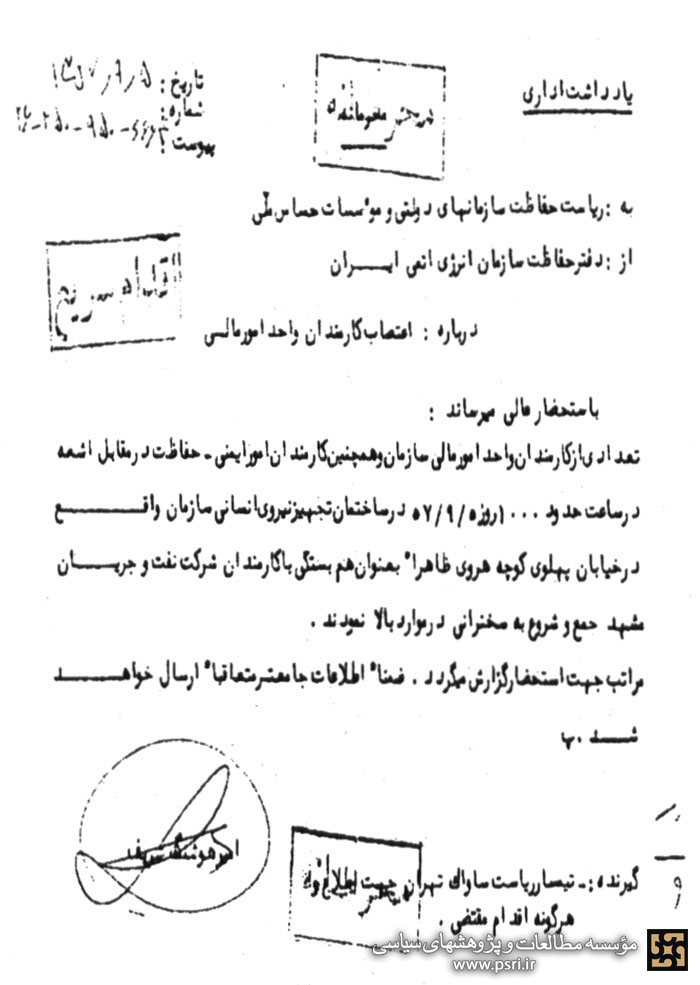 یادداشت اداری
تاریخ : ۱۳۵۷/۹/۵
شماره :
پیوست :
به : ریاست حفاظت سازمانهای دولتی و موسسات حساس ملی
از : دفتر حفاظت سازمان انرژی اتمی ایــــران
اقدام سریع
درباره : اعتصاب کارمندان واحد امور مالــی
باستحضار عالی میرساند :
تعدادی از کارمندان واحد امور مالی سازمان و همچنین کارمندان امور ایمنی ـ حفاظت در مقابل اشعه
در ساعت حدود ۱۰۰۰ روز ۵۷/۹/۵ در ساختمان تجهیز نیروی انسانی سازمان واقـــــع
در خیابان پهلوی کوچه هروی ظاهراً بعنوان هم بستگی با کارمندان شرکت نفت و جریــــان
مشهد جمع و شروع به سخنرانی در موارد بالا نمودند .
مراتب جهت استحضار گزارش میگردد . ضمناً اطلاعات جامعتر متعاقباً ارسال خواهـــــد
شـــد .
امیر هوشنگ شریف
گیرنده : ـ تیمسار ریاست ساواک تهران جهت اطلاع و
هرگونه اقدام مقتضی .
مؤسسه مطالعات و پژوهشهای سیاسی
www.psri.ir